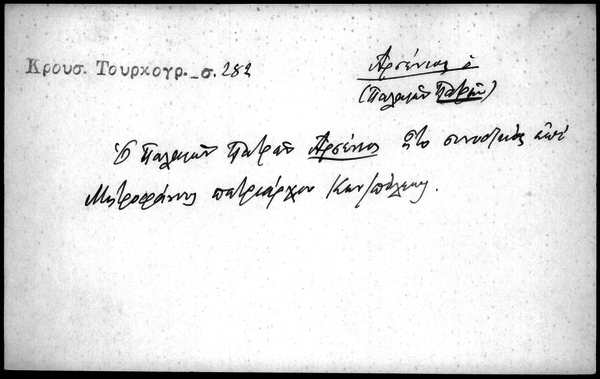 Κρουσ. Τουρκογρ. σ. 282
Ἀρσένιος ὁ
(Παλαιῶν Πατρῶν)
Ὁ Παλαιῶν Πατρῶν Ἀρσένιος ἦτο συνοδικὸς ἐπὶ
Μητροφάνους πατριάρχου Κων/πόλεως.